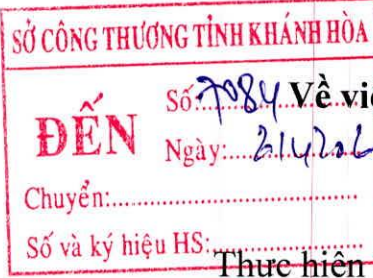 SỞ CÔNG THƯƠNG TỈNH KHÁNH HÒA
ĐẾN
Số: 7084 Về việ
Ngày:
Chuyển:
Số và ký hiệu HS:
Thực hiện